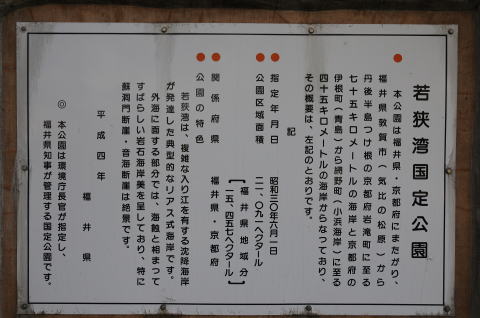 若狭湾国定公園
● 本公園は福井県・京都府にまたがり、
福井県敦賀市（気比の松原）から
丹後半島つけ根の京都府岩滝町に至る
七十五キロメートルの海岸と京都府の
伊根町（青島）から網野町（小浜海岸）に至る
四十五キロメートルの海岸からなっており、
その概要は、左記のとおりです。
記
● 指定年月日 昭和三〇年六月一日
● 公園区域面積 二一、〇九一ヘクタール
［福井県地域分
一五、四五七ヘクタール］
● 関係府県 福井県・京都府
● 公園の特色
若狭湾は、複雑な入り江を有する沈降海岸
が発達した典型的なリアス式海岸です。
外海に面する部分では、海蝕と相まって
すばらしい岩石海岸美を呈しており、特に
蘇洞門断崖・音海断崖は絶景です。
平成四年 福井県
◎ 本公園は環境庁長官が指定し、
福井県知事が管理する国定公園です。